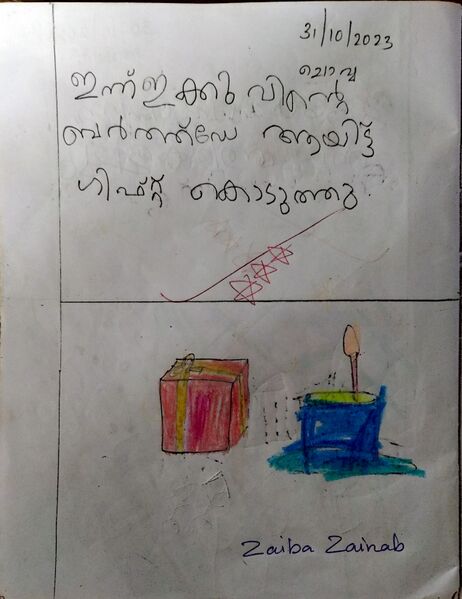 31/10/2023
ചൊവ്വ
ഇന്ന് ഇക്കുവിന്റെ
ബർത്ത്ഡേ ആയിട്ട്
ഗിഫ്റ്റ് കൊടുത്തു.
Zaiba Zainab